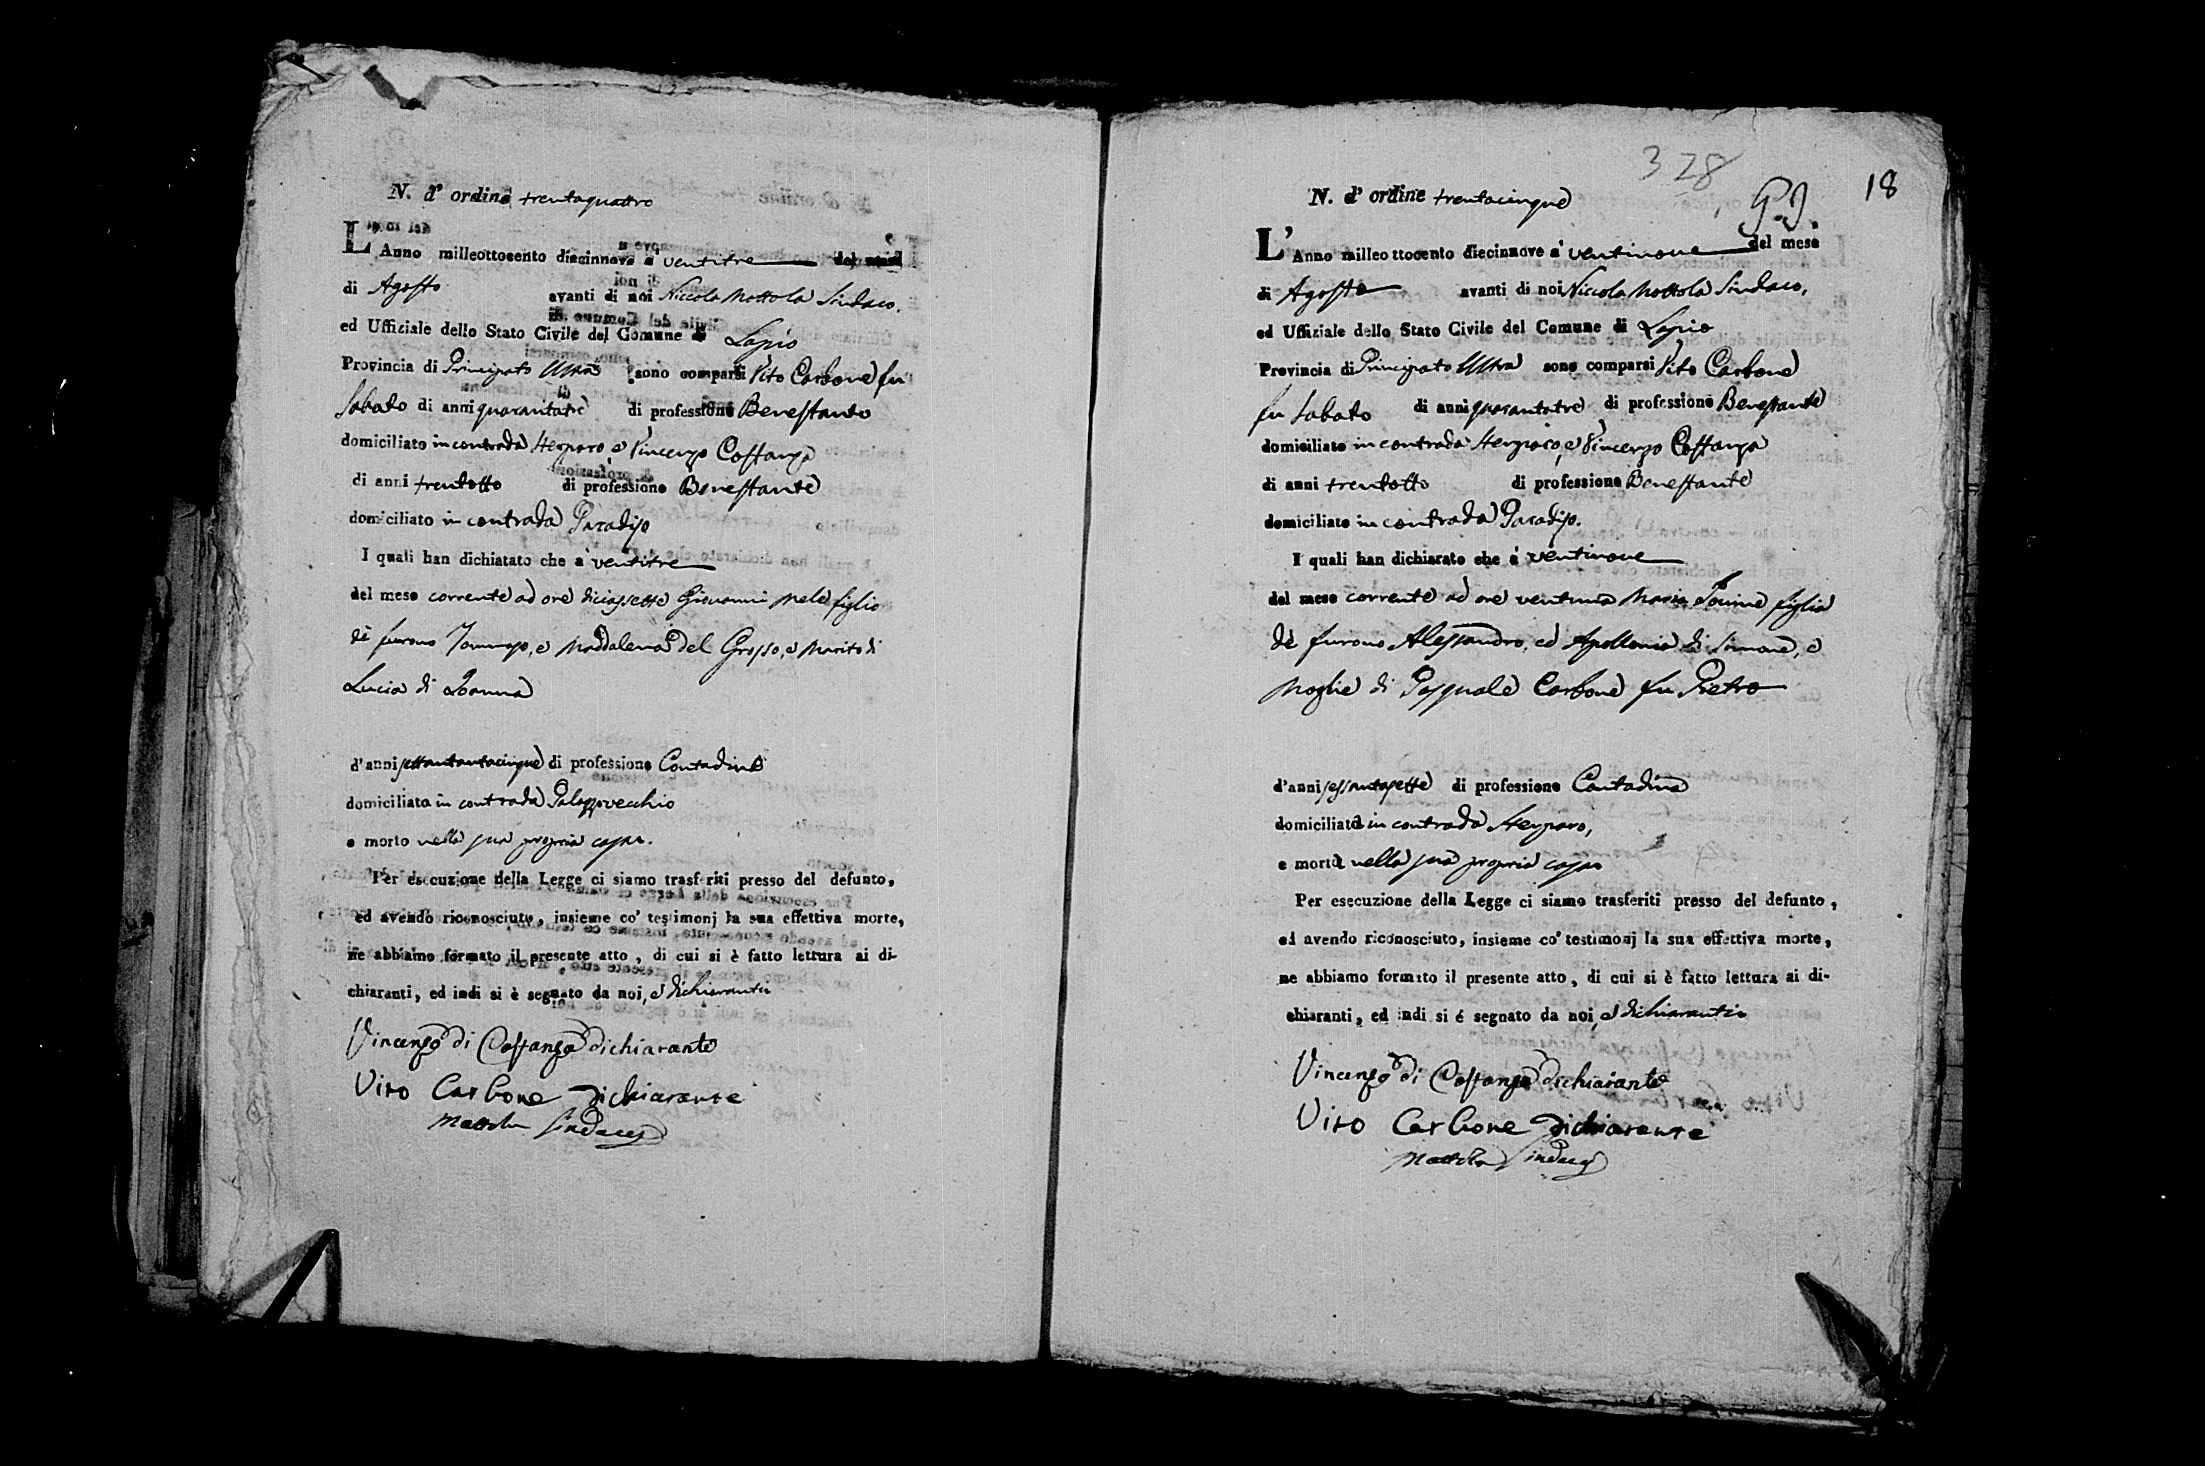 N. d' ordine trentaquattro
L' Anno milleottocento diecinnove a' ventitre del mese
di Agosto avanti di noi Niccola Mottola Sindaco,
ed Uffiziale dello Stato Civile del Comune di Lapio
Provincia di Principato Ultra sono comparsi Vito Carbone fu
Sabato di anni quarantatre di professione Benestante
domiciliato in contrada e Vincenzo Costanza
di anni trentotto di professione Benestante
domiciliato in contrada Paradiso
I quali han dichiatato che a' ventitre
del mese corrente ad ore diciassette Giovanni Mele figlio
de' furono Tommaso, e Maddalena del Grosso, e Marito di
Lucia di
d'anni settantacinque di professione Contadino
domiciliato in contrada Palazzovecchio
e morto nella sua propria casa.
Per esecuzione della Legge ci siamo trasferiti presso del defunto,
ed avendo riconosciuto, insieme co' testimonj la sua effettiva morte,
ne abbiamo formato il presente atto, di cui si è fatto lettura ai di-
chiaranti, ed indi si è segnato da noi, e dichiaranti
Vincenzo di Costanzo dichiarante
Vito Carbone dichiarante
Mottola Sindaco
328
G. J.
18
N. d' ordine trentacinque
L' Anno milleottocento diecinnove a' ventinove del mese
di Agosto avanti di noi Niccola Mottola Sindaco,
ed Uffiziale dello Stato Civile del Comune di Lapio
Provincia di Principato Ultra sono comparsi Vito Carbone
fu Sabato di anni quarantatre di professione Benestante
domiciliato in contrada e Vincenzo Costanza
di anni trentotto di professione Benestante
domiciliato in contrada Paradiso.
I quali han dichiarato che a' ventinove
del mese corrente ad ore ventuna Maria figlia
de' furono Alessandro, ed Apollonia di Simone, e
Moglie di Pasquale Carbone fu Pietro
d'anni sessantasette di professione Contadina
domiciliata in contrada
e morta nella sua propria casa
Per esecuzione della Legge ci siamo trasferiti presso del defunto,
ed avendo riconosciuto, insieme co' testimonj la sua effettiva morte,
ne abbiamo formato il presente atto, di cui si è fatto lettura ai di-
chiaranti, ed indi si é segnato da noi, e dichiaranti
Vincenzo di Costanzo dichiarante
Vito Carbone dichiarante
Mottola Sindaco